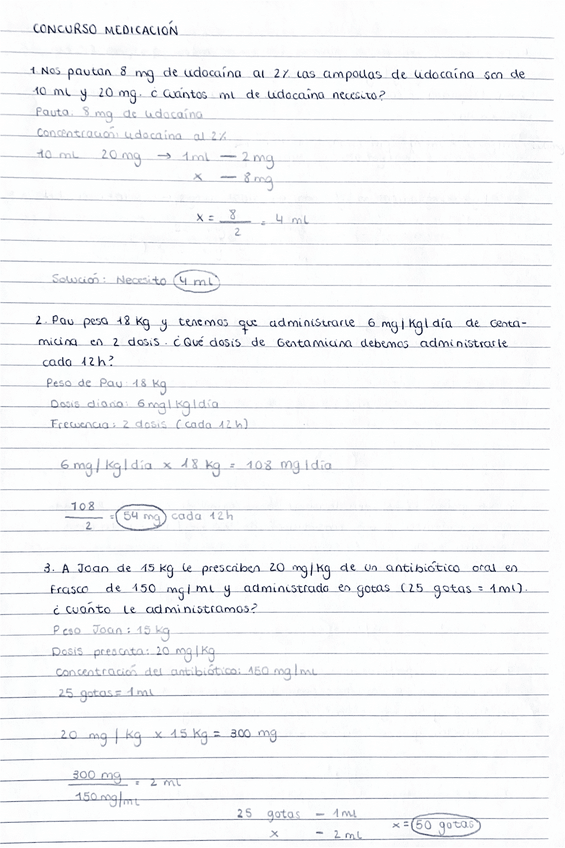 CONCURSO MEDICACIÓN
1. Nos pautan 8 mg de lidocaína al 2% las ampollas de lidocaína son de
10 mL y 20 mg. ¿Cuántos mL de lidocaína necesito?
Pauta: 8 mg de lidocaína
Concentración: lidocaína al 2%
10 mL 20 mg → 1 mL — 2 mg
x — 8 mg
x = 8 / 2 = 4 mL
Solución: Necesito 4 mL
2. Pau pesa 18 Kg y tenemos que administrarle 6 mg/Kg/día de Genta-
micina en 2 dosis. ¿Qué dosis de Gentamicina debemos administrarle
cada 12h?
Peso de Pau: 18 Kg
Dosis diaria: 6 mg/Kg/día
Frecuencia: 2 dosis (cada 12h)
6 mg/Kg/día x 18 Kg = 108 mg/día
108 / 2 = 54 mg cada 12h
3. A Joan de 15 kg le prescriben 20 mg/Kg de un antibiótico oral en
frasco de 150 mg/mL y administrado en gotas (25 gotas = 1mL).
¿Cuánto le administramos?
Peso Joan: 15 kg
Dosis prescrita: 20 mg/Kg
Concentración del antibiótico: 150 mg/mL
25 gotas = 1 mL
20 mg/Kg x 15 Kg = 300 mg
300 mg / 150 mg/mL = 2 mL
25 gotas — 1 mL
x — 2 mL x = 50 gotas